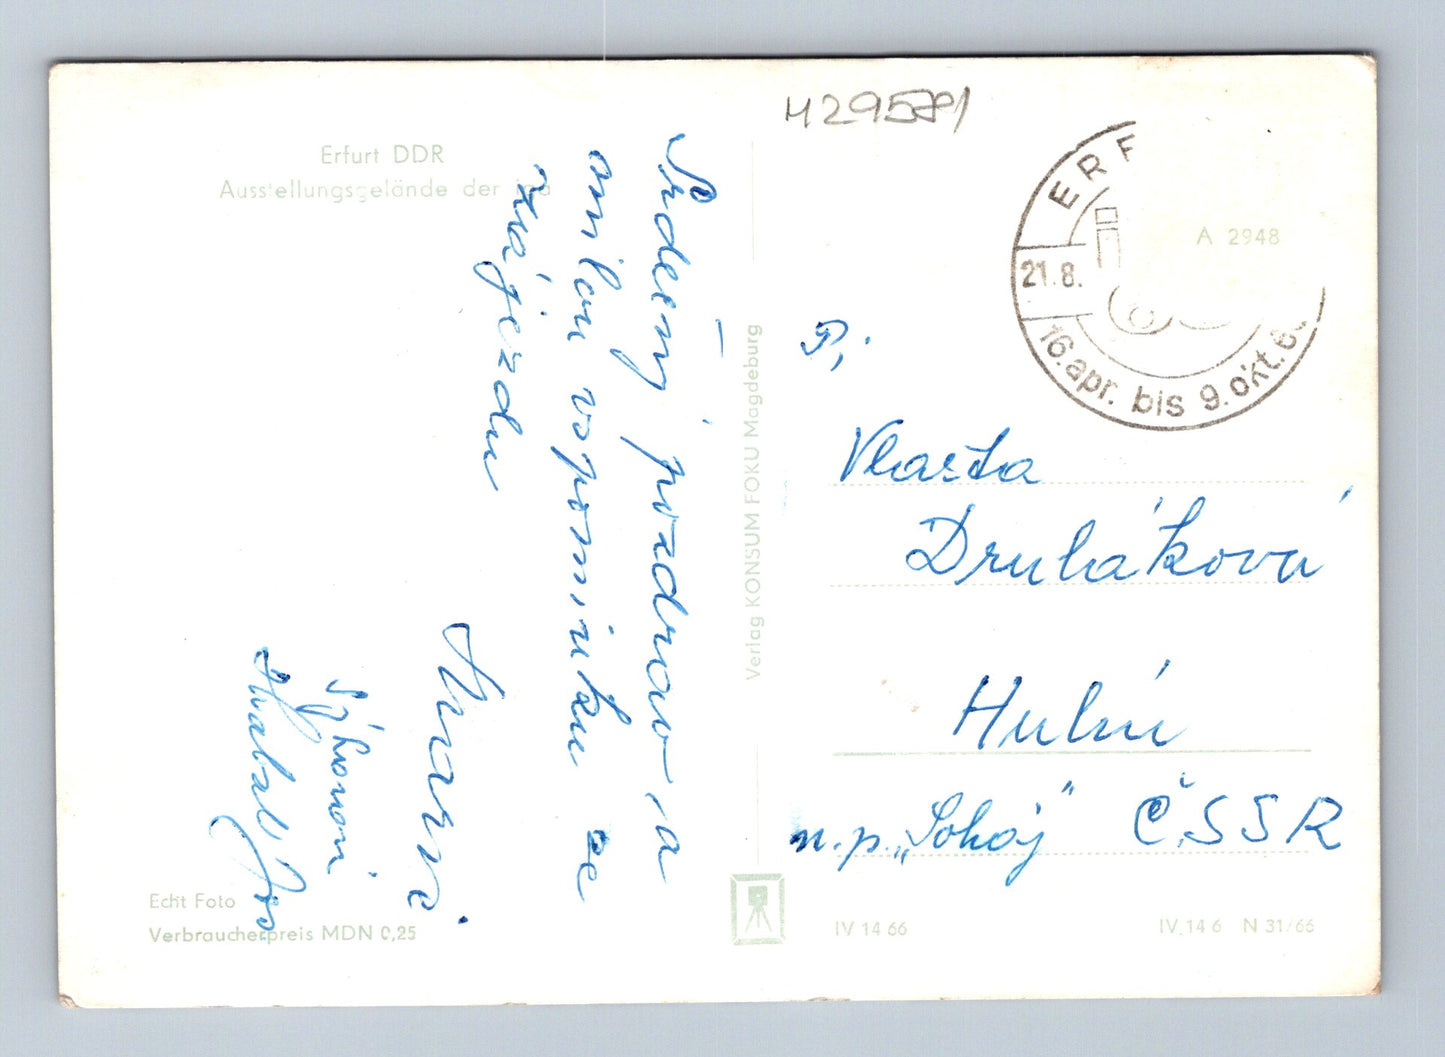 Erfurt DDR
Ausstellungsgelände der iga
Srdečný pozdrav a
milou vzpomínku ze
zájezdu
Echt Foto
Verbraucherpreis MDN 0,25
Verlag KONSUM FOKU Magdeburg
ERF
21.8.
16.apr. bis 9.okt.6
A 2948
P,
Vlasta
Druháková
Hulín
n.p. „Sokoj" ČSSR
IV 14 66
IV 14 6 N 31/66